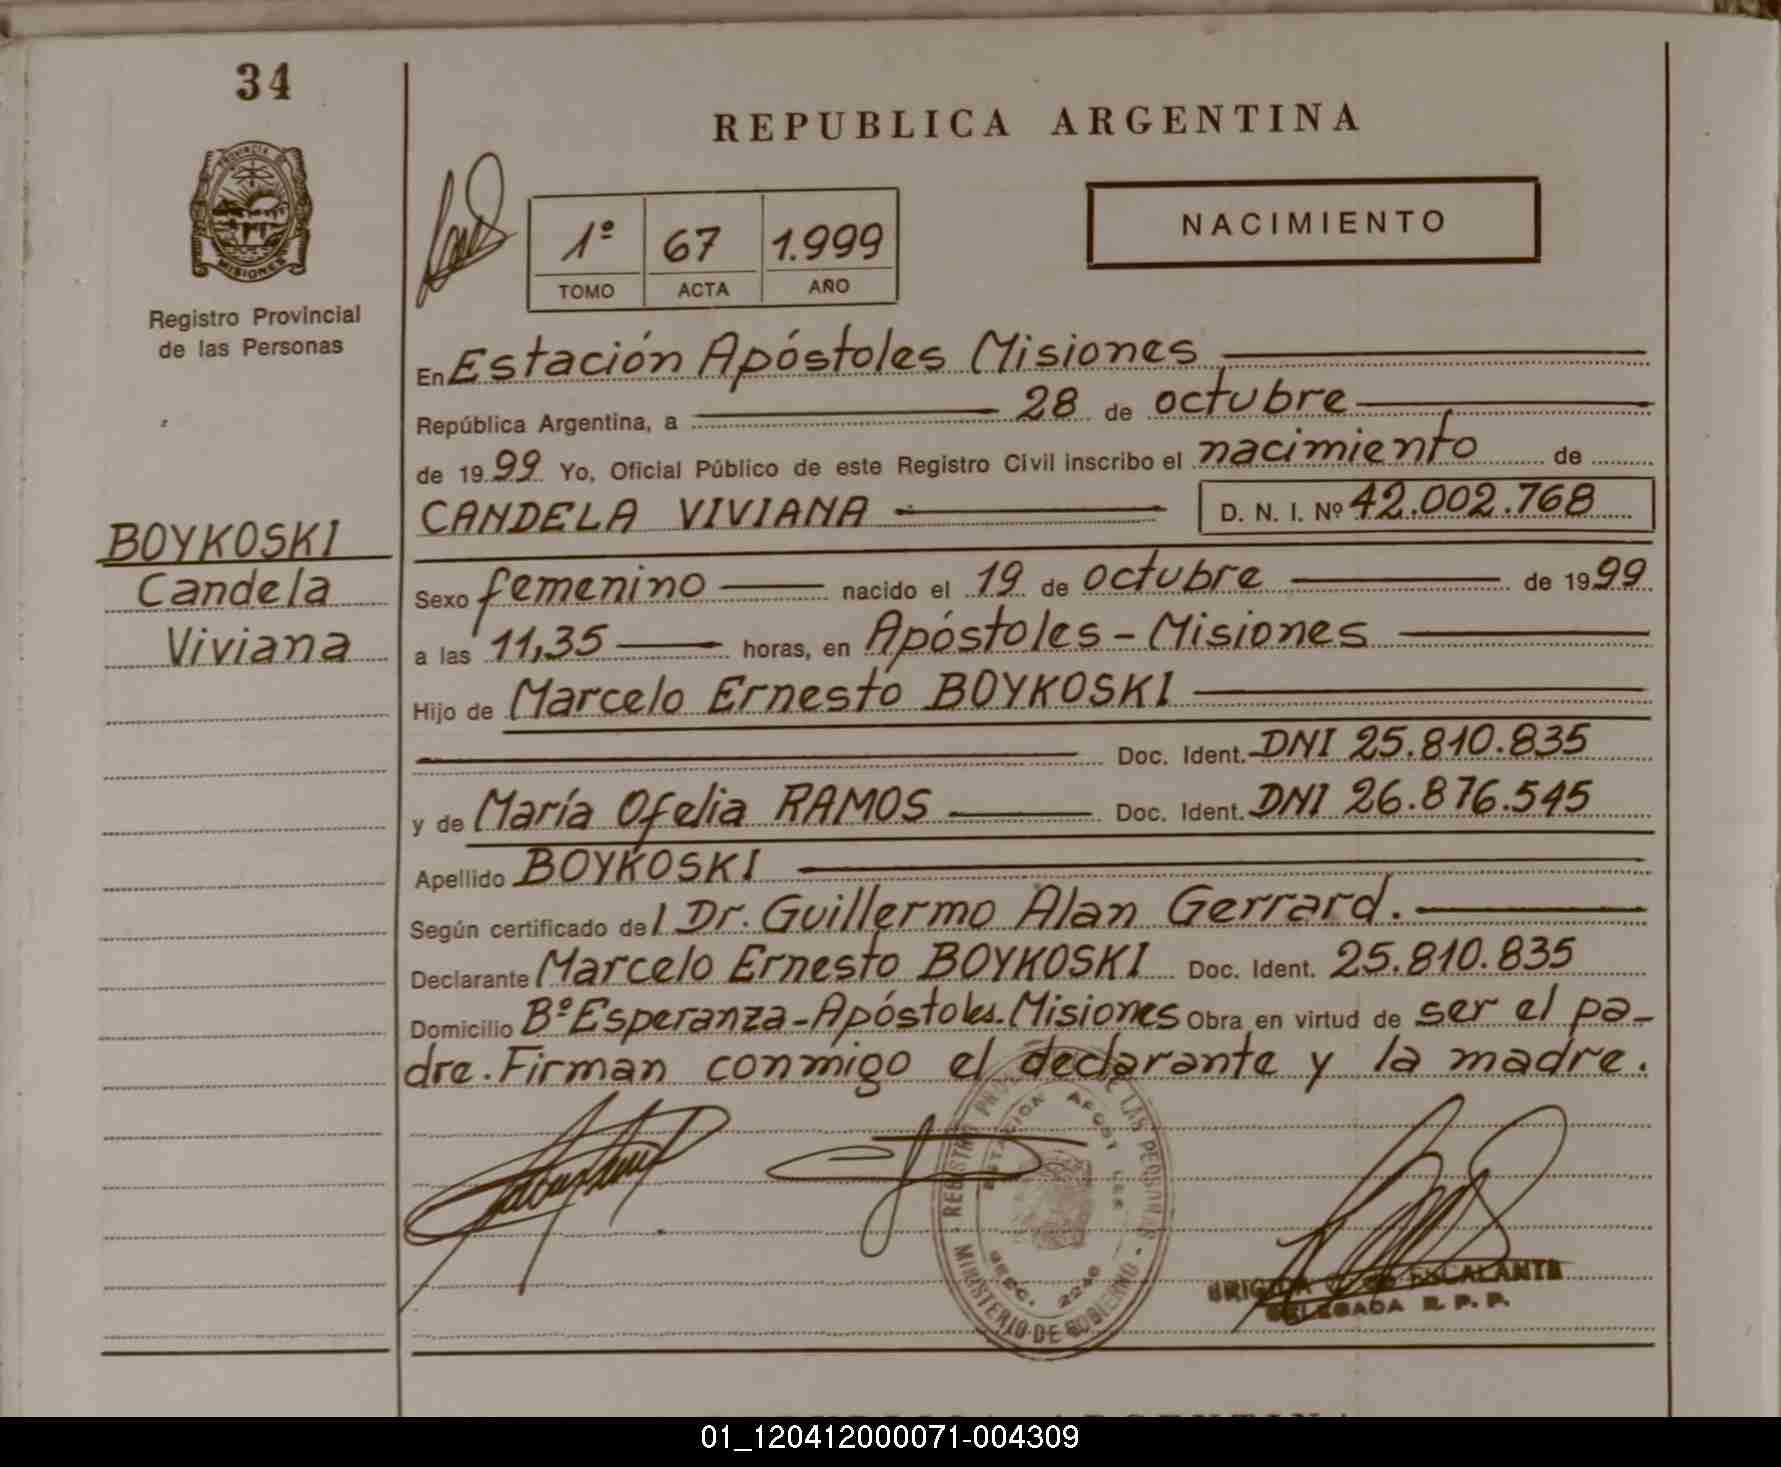 34
REPUBLICA ARGENTINA
PROVINCIA DE
MISIONES
Registro Provincial
de las Personas
1º 67 1.999
TOMO ACTA AÑO
NACIMIENTO
En Estación Apóstoles Misiones
República Argentina, a 28 de octubre
de 1999 Yo, Oficial Público de este Registro Civil inscribo el nacimiento de
CANDELA VIVIANA D. N. I. Nº 42.002.768
BOYKOSKI
Candela
Viviana
Sexo femenino nacido el 19 de octubre de 1999
a las 11,35 horas, en Apóstoles - Misiones
Hijo de Marcelo Ernesto BOYKOSKI
Doc. Ident. DNI 25.810.835
y de María Ofelia RAMOS Doc. Ident. DNI 26.876.545
Apellido BOYKOSKI
Según certificado del Dr. Guillermo Alan Gerrard.
Declarante Marcelo Ernesto BOYKOSKI Doc. Ident. 25.810.835
Domicilio Bº Esperanza - Apóstoles. Misiones Obra en virtud de ser el pa-
dre. Firman conmigo el declarante y la madre.
MINISTERIO DE GOBIERNO
ESCALANTE
DELEGADA R. P. P.
01_120412000071-004309